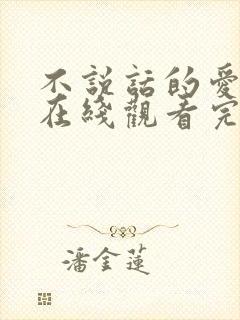 不説話的愛
在綫觀看完
潘金蓮